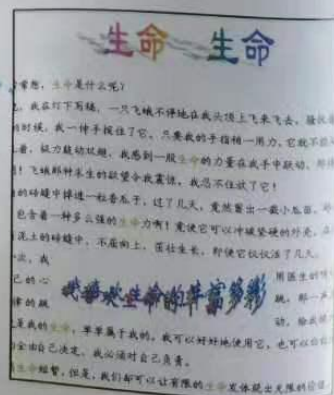 生命 生命
常想，生命是什么呢？
，我在灯下写稿，一只飞蛾不停地在我头顶上飞来飞去，骚扰
的时候，我一伸手捉住了它。只要我的手指稍一用力，它就不能
着，极力鼓动双翅，我感到一股生命的力量在我手中跃动，那样
！飞蛾那种求生的欲望令我震惊，我忍不住放了它！
的砖缝中掉进一粒香瓜子，过了几天，竟然冒出一截小瓜苗。那
包含着一种多么强的生命力啊！竟使它可以冲破坚硬的外壳，在
泥土的砖缝中，不屈向上，茁壮生长，即使它仅仅活了几天。
一次，我
用医生的
己的心
跳，那一
律的跳
动，给我
我喜欢生命的丰富多彩
是我的生命，单单属于我的。我可以好好地使用它，也可以
全由自己决定，我必须对自己负责。
生命短暂，但是，我们却可以让有限的生命发体现出无限的价值